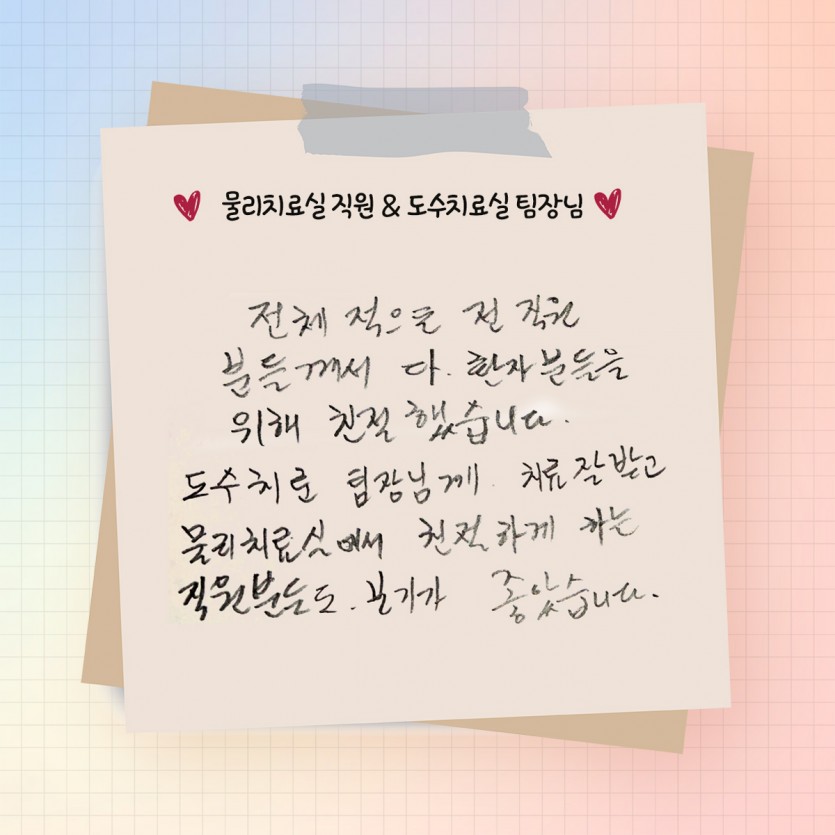 물리치료실 직원 & 도수치료실 팀장님
전체 적으로 전 직원
분들께서 다. 환자분들을
위해 친절 했습니다.
도수치료 팀장님께. 치료 잘 받고
물리치료실에서 친절하게 하는
직원분들도. 보기가 좋았습니다.